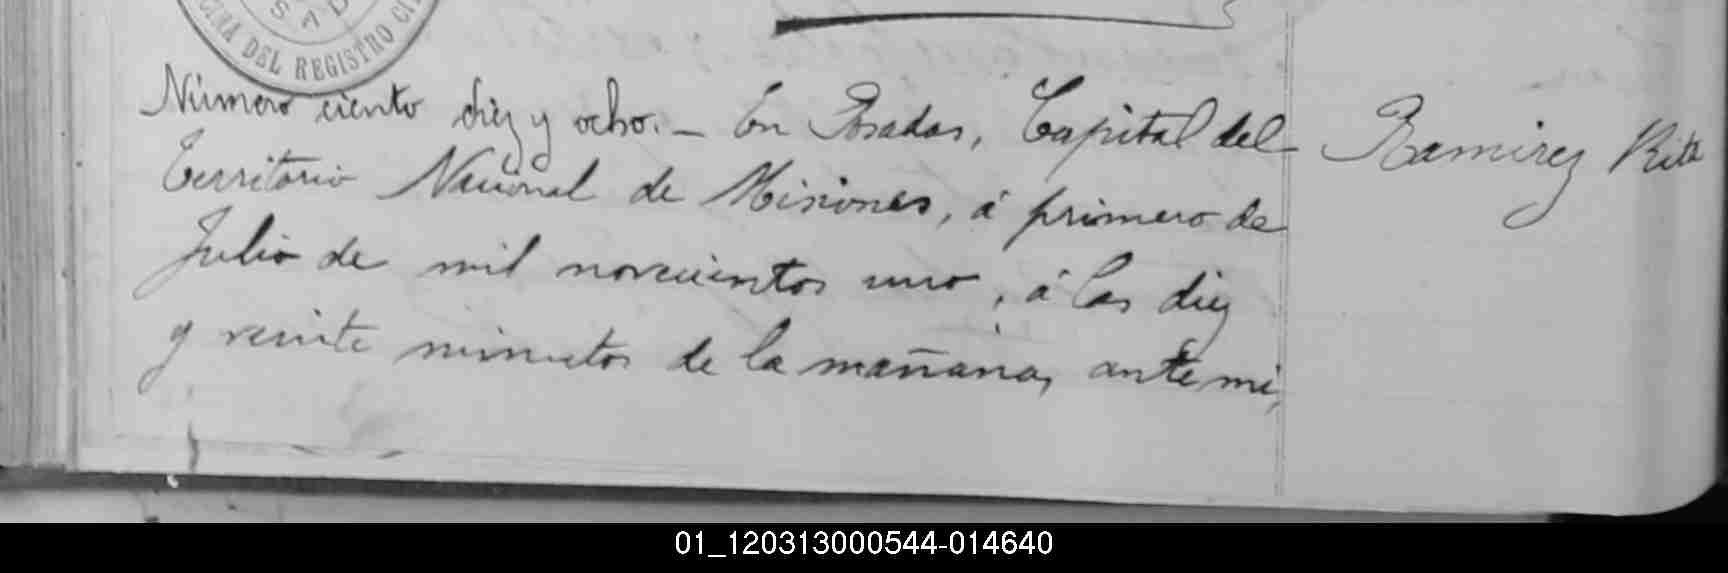 OFICINA DEL REGISTRO CIVIL
Número ciento diez y ocho. — En Posadas, Capital del
Territorio Nacional de Misiones, á primero de
Julio de mil novecientos uno, á las diez
y veinte minutos de la mañana, ante mi,
Ramirez Rita
01_120313000544-014640